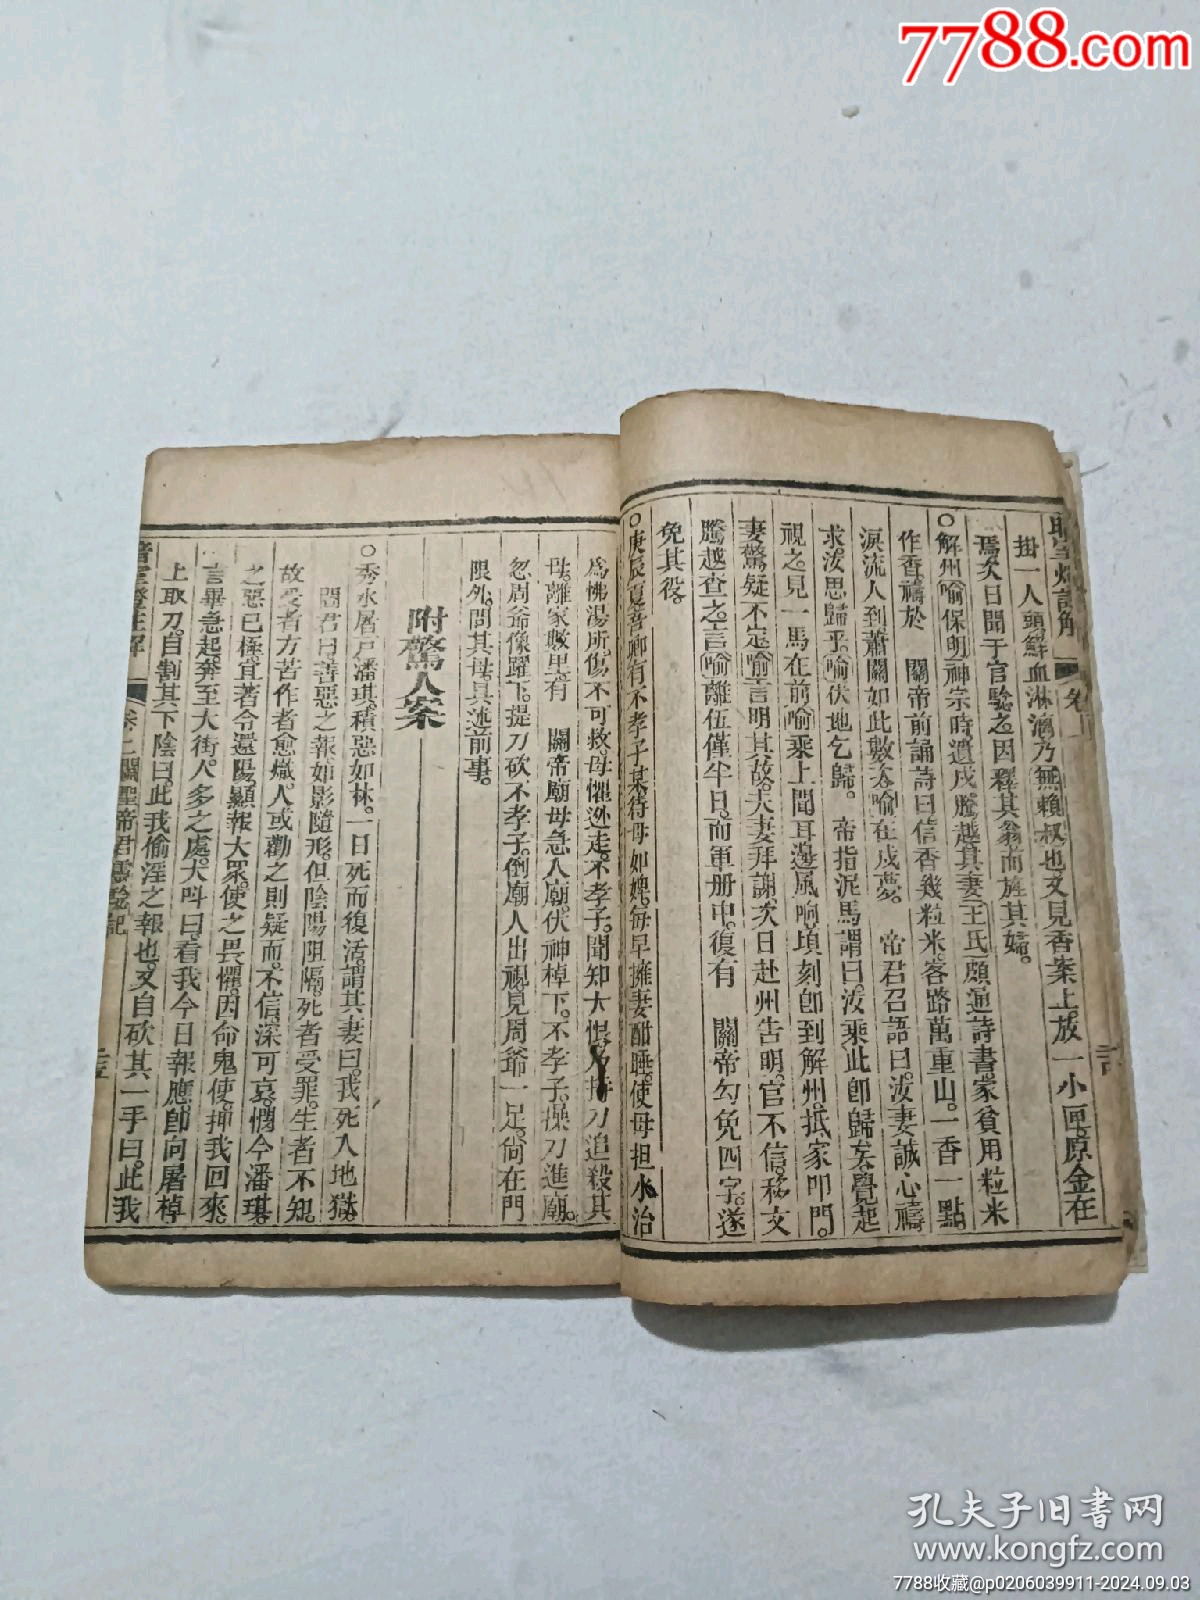 7788.com
掛一人頭鮮血淋漓乃無賴叔也又見香案上放一小匣原金在
焉次日聞于官驗之因釋其翁而旌其婦。
○解州喻保明神宗時遣戍騰越其妻王氏頗通詩書家貧用粒米
作香禱於 關帝前誦詩曰信香幾粒米客路萬重山。一香一點
淚流人到蕭關如此數太喻在戍夢。 帝君召語曰汝妻誠心禱
求汝思歸乎。喻伏地乞歸。 帝指泥馬謂曰汝乘此即歸矣覺起
視之見一馬在前喻乘上聞耳邊風响項刻卽到解州抵家叩門。
妻驚疑不定喻言明其故夫妻拜謝次日赴州告明官不信移文
騰越查之言喻離伍僅半日。而軍册中。復有 關帝勾免四字。遂
免其役。
○庚辰夏善鄉有不孝子某待母如婢每早擁妻酣睡使母担水治
爲沸湯所傷不可救母懼逃走。不孝子。聞知大恨持刀追殺其
母。離家數里有 關帝廟母急入廟。伏神棹下。不孝子。操刀進廟。
忽周爺像躍下。提刀砍不孝子。倒廟人出視見周爺一足。尚在門
限外。問其母。具述前事。
附驚人案
○秀水屠戶潘琪。積惡如林。一日死而復活謂其妻曰。我死入地獄。
閻君曰善惡之報。如影隨形。但陰陽阻隔。死者受罪。生者不知。
故受者方苦作者愈熾。人或勸之則疑而不信深可哀憫今潘琪
之惡已極宜著令還陽顯報大眾。使之畏懼。因命鬼使。押我回來。
言畢急起奔至大街。人多之處大呌曰看我今日報應卽向屠棹
上取刀。自割其下陰曰。此我偷淫之報也。又自砍其一手曰。此我
卷二關聖帝君靈驗記
孔夫子旧書网
www.kongfz.com
7788收藏@p0206039911-2024.09.03